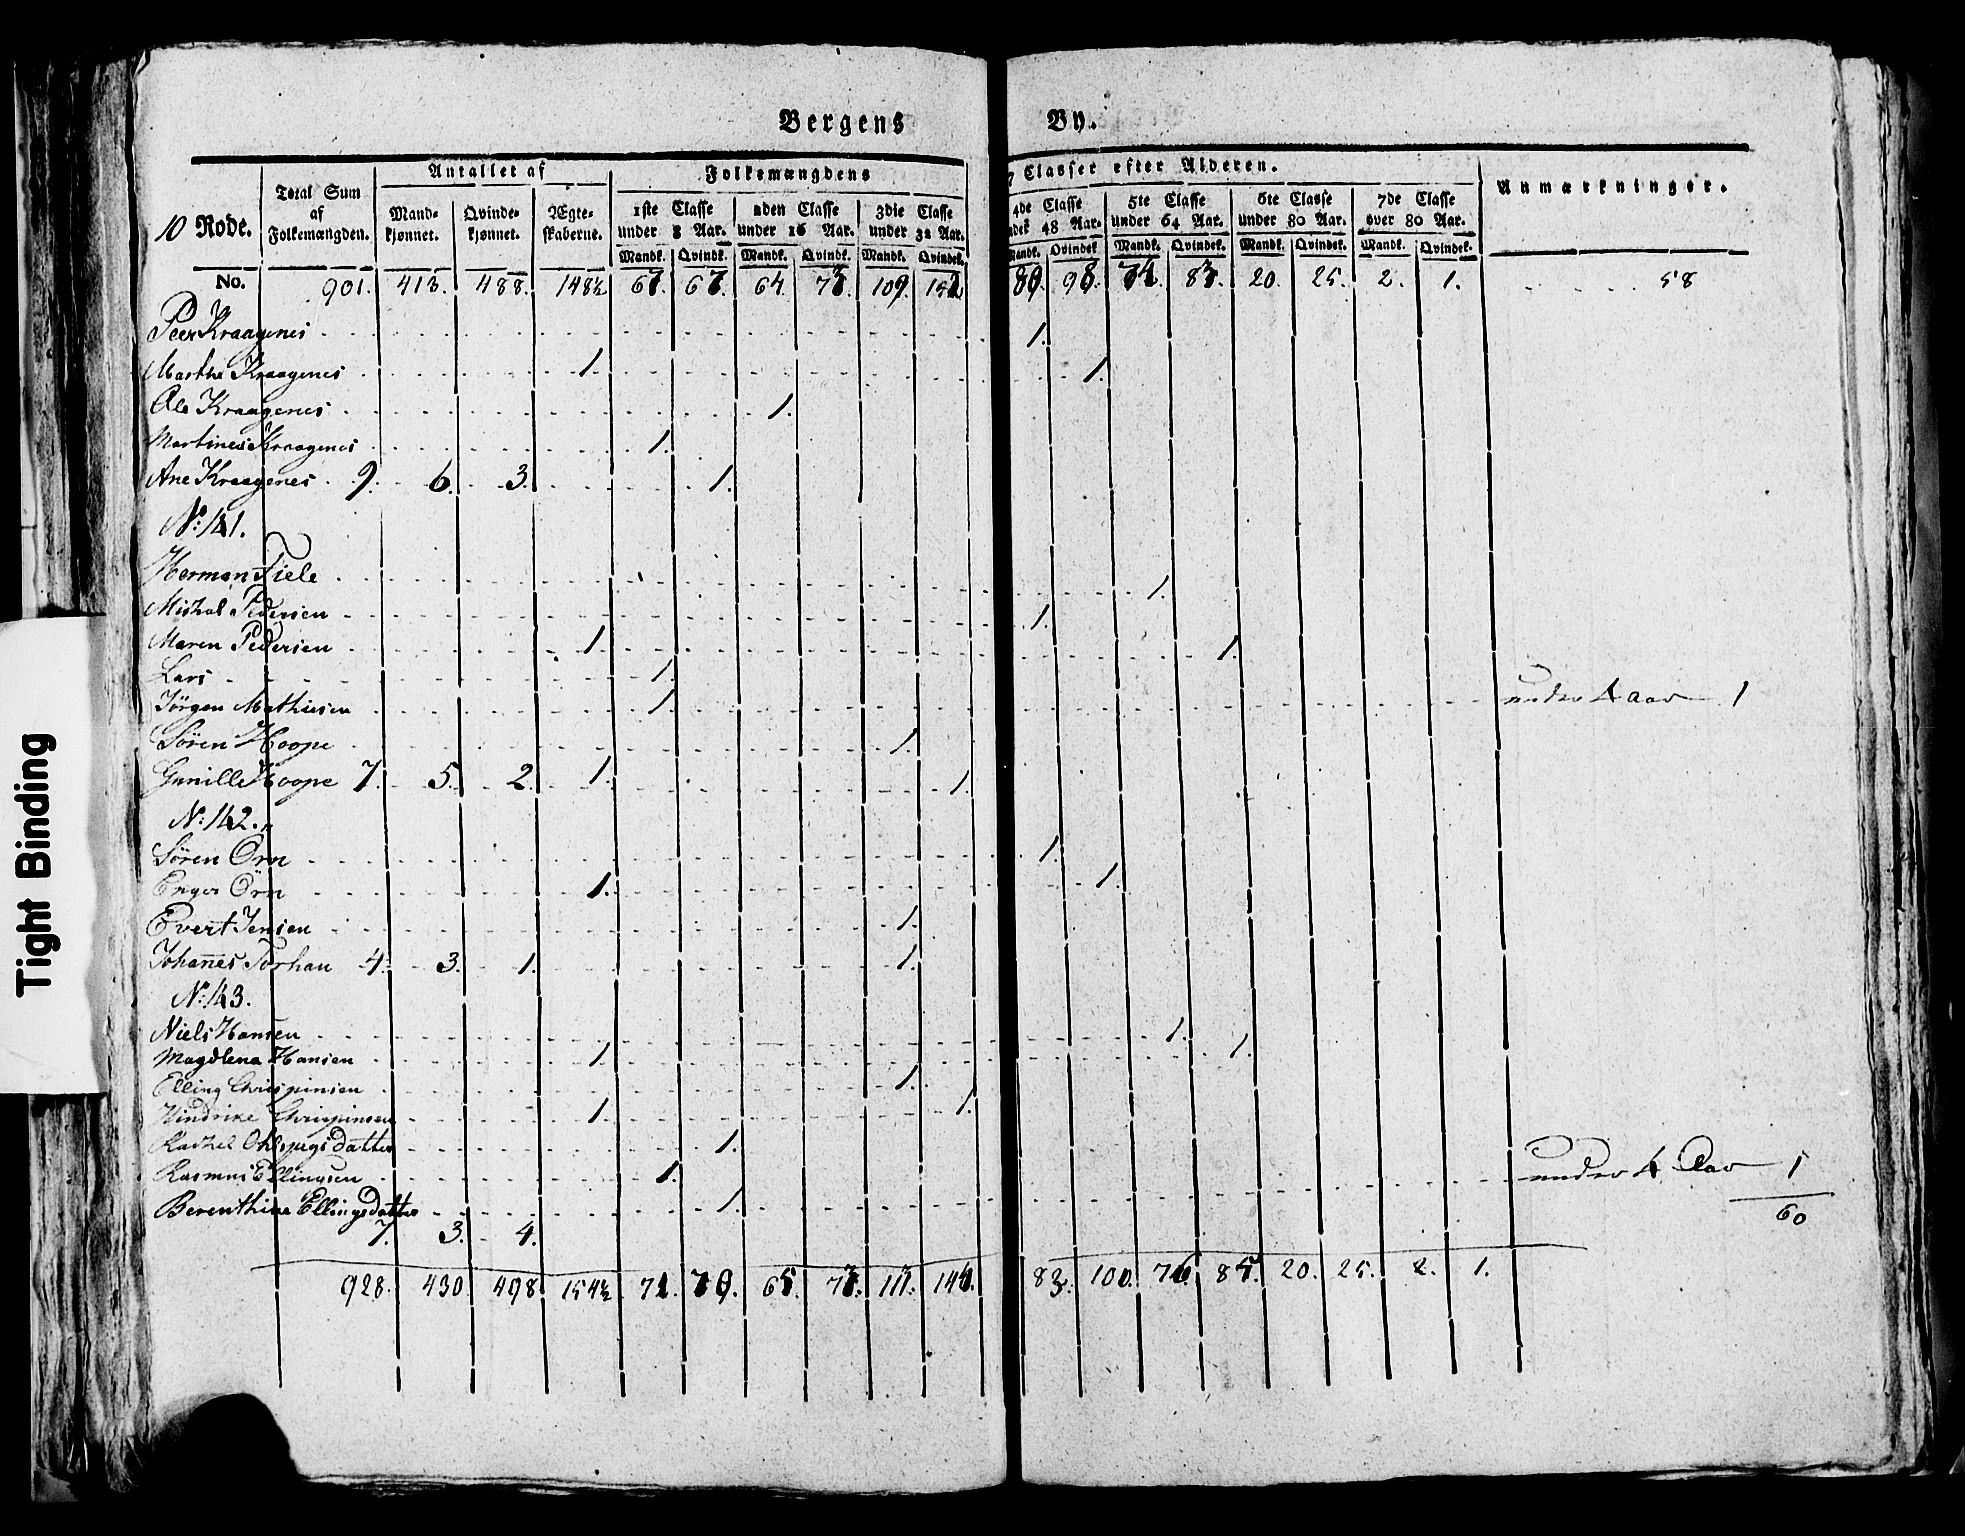 Bergens By.
Antallet af Folkemængdens 7 Classer efter Alderen.
10 Rode. Total Sum af Folkemængden. Mandkjønnet. Qvindekjønnet. Ægteskaberne. 1ste Classe under 8 Aar. 2den Classe under 16 Aar. 3die Classe under 32 Aar. 4de Classe 48 Aar. 5te Classe under 64 Aar. 6te Classe under 80 Aar. 7de Classe over 80 Aar. Anmærkninger.
Mandk. Qvindk. Mandk. Qvindk. Mandk. Qvindek. Mandk. Qvindek. Mandk. Qvindek. Mandk. Qvindek. Mandk. Qvindek.
No. 901. 413. 488. 148½ 67. 67. 64. 73. 109. 98. 20. 25. 2. 1. 58
Peer Kraagenes 1.
Marthe Kraagenes 1. 1.
Ole Kraagenes 1.
Martines Kraagenes 1.
Ane Kraagenes 9. 6. 3. 1.
No: 141.
Herman Tiele 1.
Mishal Pedersen 1.
Maren Pedersen 1. 1.
Lars 1.
Jörgen Mathiesen 1. under 4 aar 1
Sören Hoope 1.
Gunille Hoope 7. 5. 2. 1. 1.
No: 142.
Sören Örn 1.
Enger Örn 1. 1.
Evert Jensen 1.
Johannes Torhau 4. 3. 1. 1.
No: 143.
Niels Hansen 1.
Magdlena Hansen 1. 1.
Elling Chrispinsen 1.
Hindrike Chrispinsen 1. 1.
Rachel datter 1.
Rasmus Ellingsen 1. under 4 Aar 1
Berenthine Ellingsdatter 1. 60
7. 3. 4.
928. 430 498. 154½ 72. 70. 65. 73. 113. 83. 100. 76. 85. 20. 25. 2. 1.
Tight Binding